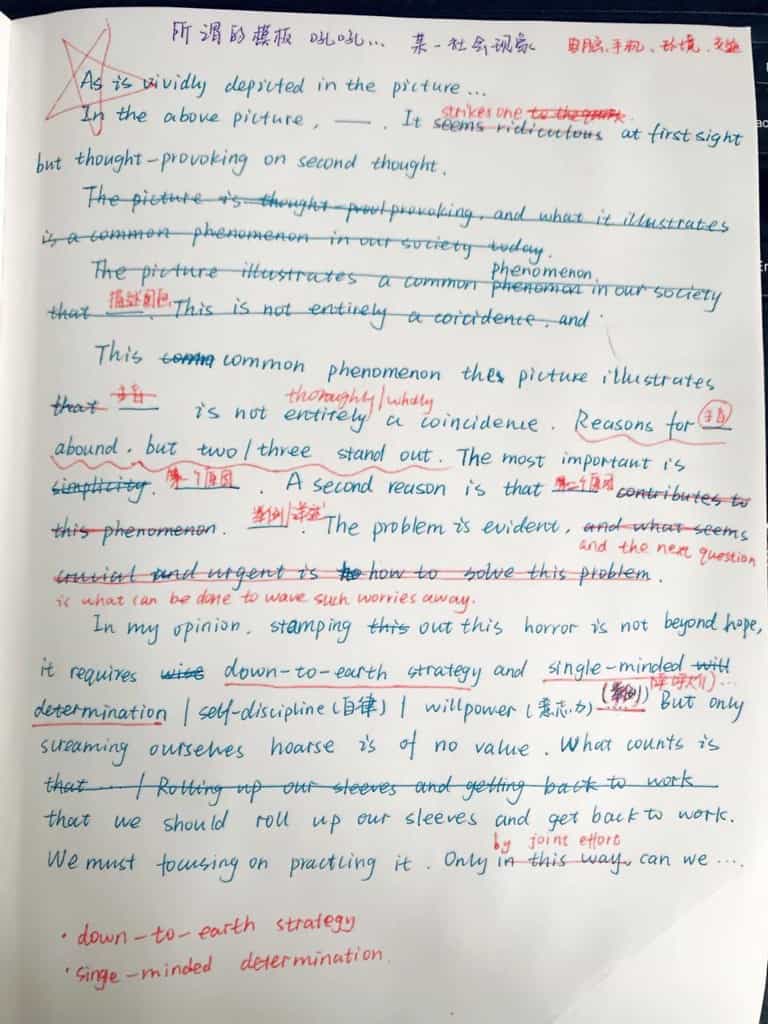 所谓的模板 吼吼... 某一社会现象 电脑、手机、环境、交通
As is vividly depicted in the picture ...
strikes one
In the above picture, ——. It seems ridiculous at first sight
but thought-provoking on second thought.
The picture is thought-provoking, and what it illustrates
is a common phenomenon in our society today.
phenomenon
The picture illustrates a common phenomon in our society
that 描述问题. This is not entirely a coicidence, and
This common phenomenon the picture illustrates
thoroughly/wholly
that 主旨 is not entirely a coincidence. Reasons for 主旨
abound, but two/three stand out. The most important is
simplicity. 第一个原因. A second reason is that 第二个原因 contributes to
this phenomenon. The problem is evident, and what seems
and the next question
crucial and urgent is how to solve this problem.
is what can be done to wave such worries away.
In my opinion, stamping this out this horror is not beyond hope,
it requires wise down-to-earth strategy and single-minded will
(举例) 障呼难) ...
determination | self-discipline (自律) | willpower (意志力) ...... But only
screaming ourselves hoarse is of no value. What counts is
that ... / Rolling up our sleeves and getting back to work
that we should roll up our sleeves and get back to work.
by joint effort
We must focusing on practling it. Only in this way, can we ....
· down-to-earth strategy
· singe-minded determination.